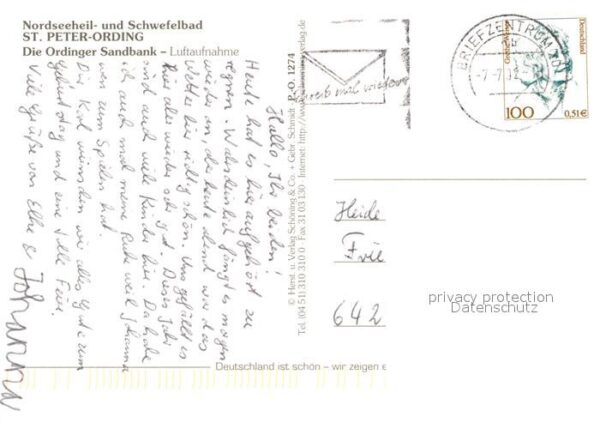 Nordseeheil- und Schwefelbad
ST. PETER-ORDING
Die Ordinger Sandbank – Luftaufnahme
Hallo, Ihr beiden!
Heute hat es hier aufgehört zu
regnen. Wahrscheinlich fängt es morgen
wieder an, aber heute abend war das
Wetter hier richtig schön. Uns gefällt es
hier aber wieder sehr gut. Dieses Jahr
sind auch viele Kinder hier. Da habe
ich auch mal meine Ruhe weil Johanna
wen zum Spielen hat.
Dir Karl wünschen wir alles Gute zum
Geburtstag und eine tolle Feier.
Viele Grüße von Elke &
Johanna
© Herst. u. Verlag Schöning & Co. + Gebr. Schmidt P.-O. 1274
Tel. (04 51) 310 310 0 · Fax 31 03 130 · Internet: http://www.verlag.de
Schreib mal wieder
BRIEFZENTRUM 20
-7.-7.02
Deutschland
100
0,51€
Heide
Frie
642
privacy protection
Datenschutz
Deutschland ist schön – wir zeigen e